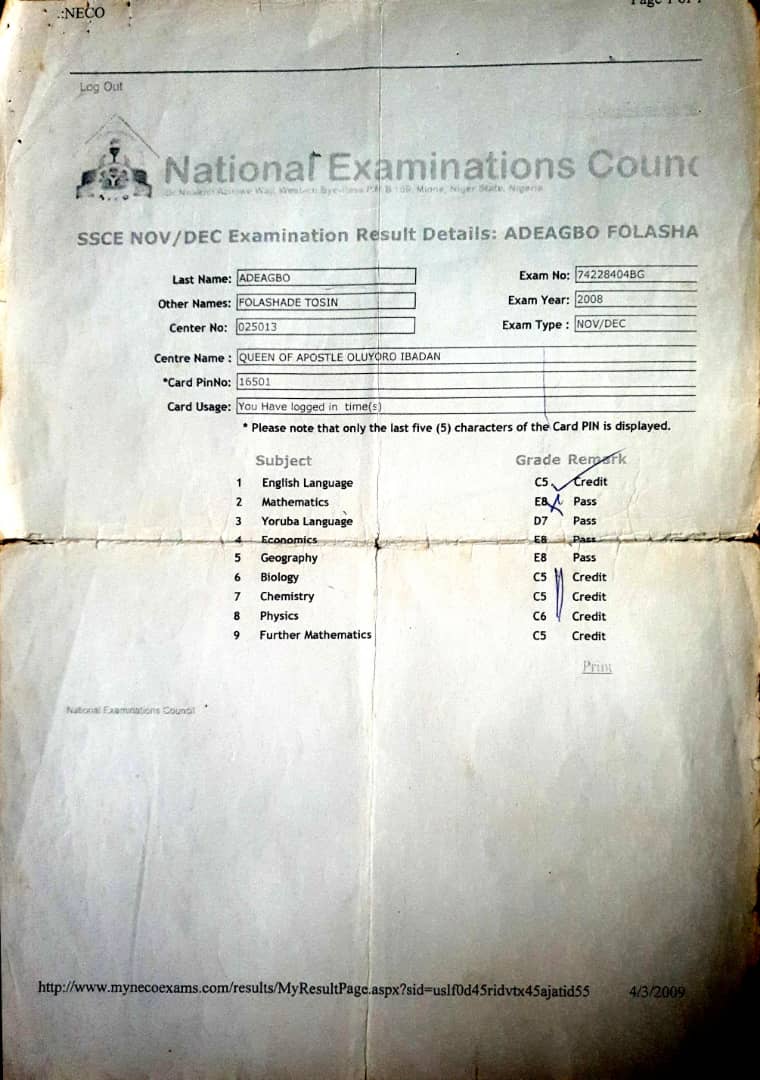 .:NECO
Page 1 of 1
Log Out
National Examinations Counc
SSCE NOV/DEC Examination Result Details: ADEAGBO FOLASHA
Last Name: ADEAGBO Exam No: 74228404BG
Other Names: FOLASHADE TOSIN Exam Year: 2008
Center No: 025013 Exam Type : NOV/DEC
Centre Name : QUEEN OF APOSTLE OLUYORO IBADAN
*Card PinNo: 16501
Card Usage: You Have logged in time(s)
* Please note that only the last five (5) characters of the Card PIN is displayed.
Subject Grade Remark
1 English Language C5 Credit
2 Mathematics E8 Pass
3 Yoruba Language D7 Pass
4 Economics E8 Pass
5 Geography E8 Pass
6 Biology C5 Credit
7 Chemistry C5 Credit
8 Physics C6 Credit
9 Further Mathematics C5 Credit
Print
National Examinations Council
http://www.mynecoexams.com/results/MyResultPage.aspx?sid=uslf0d45ridvtx45ajatid55 4/3/2009